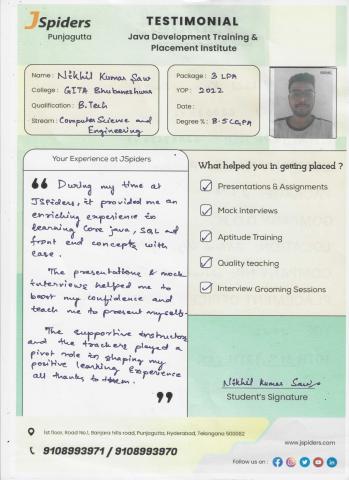 JSpiders
Punjagutta
TESTIMONIAL
Java Development Training &
Placement Institute
Name : Nikhil Kumar Saw
College : GITA Bhubaneshwar
Qualification : B.Tech
Stream : Computer Science and
Engineering
Package : 3 LPA
YOP : 2022
Date :
Degree % : 8.5 CGPA
Your Experience at JSpiders
During my time at
JSpiders, it provided me an
enriching experience in
learning core java, SQL and
front end concepts with
ease.
The presentations & mock
interviews helped me to
boost my confidence and
teach me to present myself.
The supportive instructors
and the trackers played a
pivot role in shaping my
positive learning experience
all thanks to them.
What helped you in getting placed ?
Presentations & Assignments
Mock Interviews
Aptitude Training
Quality teaching
Interview Grooming Sessions
Nikhil Kumar Saw
Student's Signature
1st floor, Road No.1, Banjara hills road, Punjagutta, Hyderabad, Telangana 500082
9108993971 / 9108993970
www.jspiders.com
Follow us on :